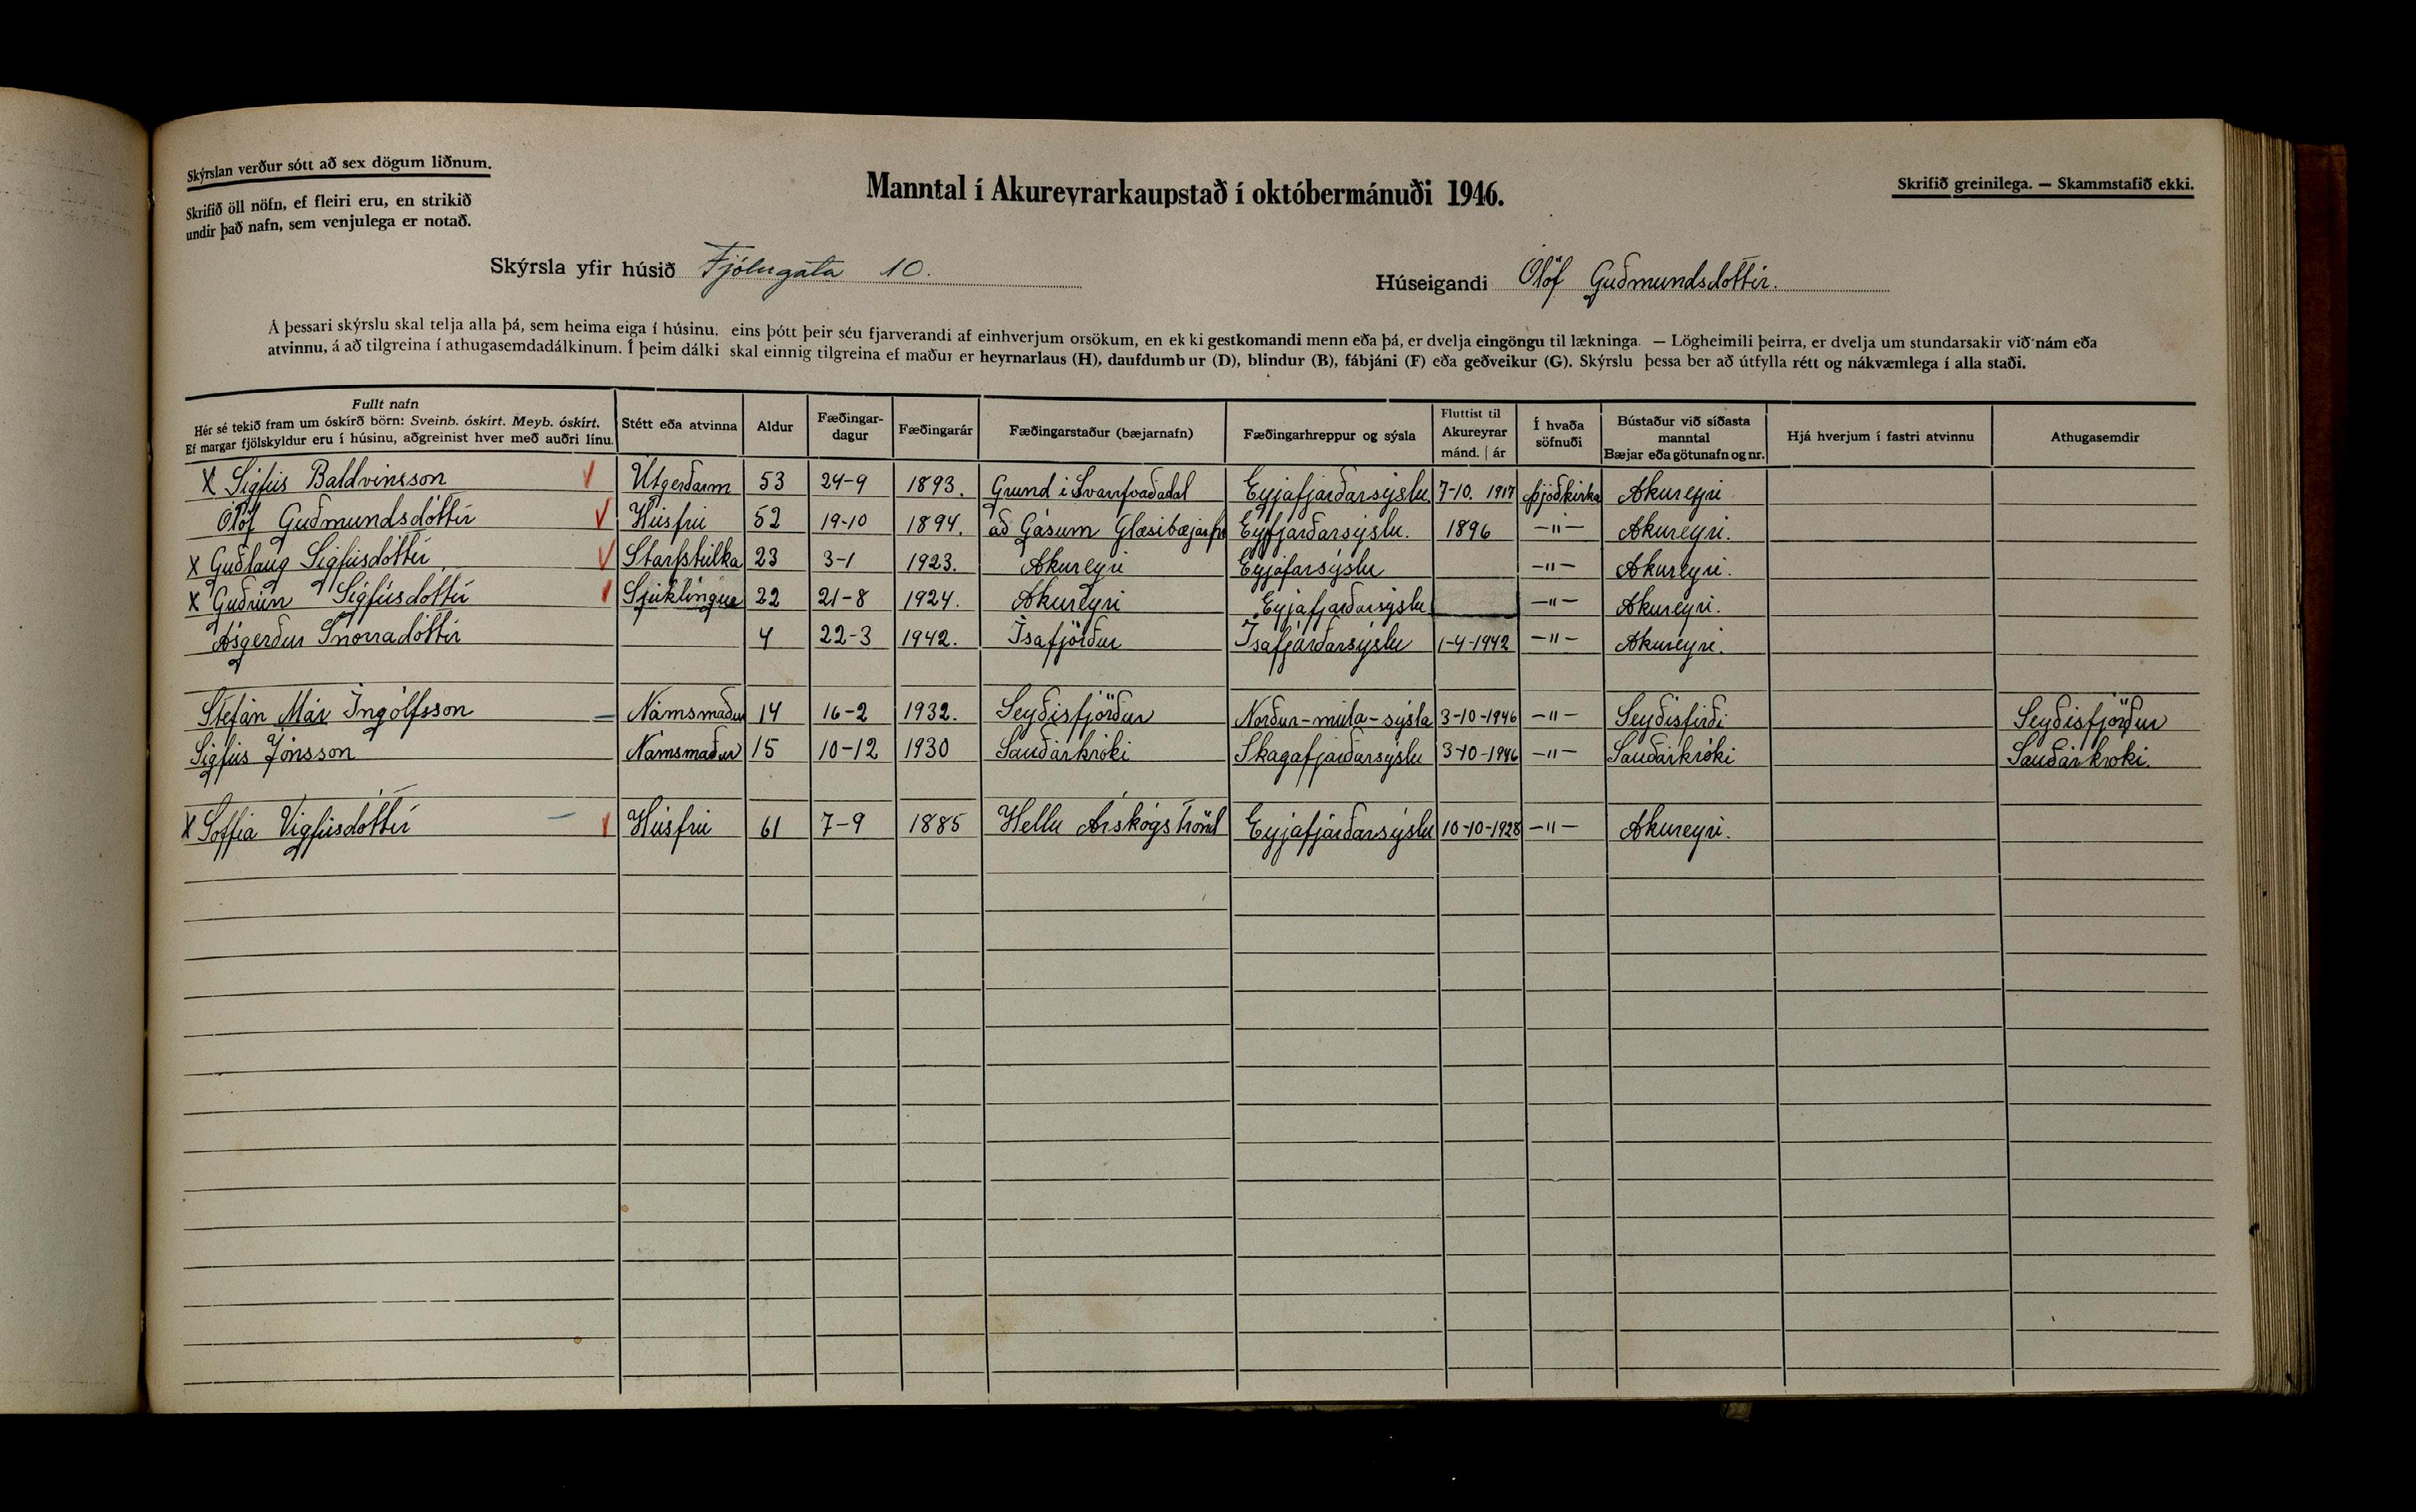 Skýrslan verður sótt að sex dögum liðnum.
Skrifið öll nöfn, ef fleiri eru, en strikið
undir það nafn, sem venjulega er notað.
Manntal í Akureyrarkaupstað í októbermánuði 1946.
Skrifið greinilega. — Skammstafið ekki.
Skýrsla yfir húsið Fjólugata 10.
Húseigandi Ólöf Guðmundsdóttir.
Á þessari skýrslu skal telja alla þá, sem heima eiga í húsinu, eins þótt þeir séu fjarverandi af einhverjum orsökum, en ekki gestkomandi menn eða þá, er dvelja eingöngu til lækninga. — Lögheimili þeirra, er dvelja um stundarsakir við nám eða
atvinnu, á að tilgreina í athugasemdadálkinum. Í þeim dálki skal einnig tilgreina ef maður er heyrnarlaus (H), daufdumbur (D), blindur (B), fábjáni (F) eða geðveikur (G). Skýrslu þessa ber að útfylla rétt og nákvæmlega í alla staði.
Fullt nafn
Hér sé tekið fram um óskírð börn: Sveinb. óskírt. Meyb. óskírt.
Ef margar fjölskyldur eru í húsinu, aðgreinist hver með auðri línu.
Stétt eða atvinna
Aldur
Fæðingar-
dagur
Fæðingarár
Fæðingarstaður (bæjarnafn)
Fæðingarhreppur og sýsla
Fluttist til
Akureyrar
mánd. | ár
Í hvaða
söfnuði
Bústaður við síðasta
manntal
Bæjar eða götunafn og nr.
Hjá hverjum í fastri atvinnu
Athugasemdir
X Sigfús Baldvinsson V Útgerðarm 53 24-9 1893. Grund í Svarfvaðadal Eyjafjarðarsýslu 7-10. 1917 Þjóðkirka Akureyri
Ólöf Guðmundsdóttir V Húsfrú 52 19-10 1894. að Gásum Glæsibæjarhr Eyjfjarðarsýslu. 1896 -"- Akureyri.
X Guðlaug Sigfúsdóttir V Starfstúlka 23 3-1 1923. Akureyri Eyjafarsýslu -"- Akureyri.
X Guðrún Sigfúsdóttir V Sjúklingur 22 21-8 1924. Akureyri Eyjafjarðarsýslu -"- Akureyri.
Ásgerður Snorradóttir 4 22-3 1942. Ísafjörður Ísafjarðarsýslu 1-4-1942 -"- Akureyri.
Stefán Már Ingólfsson — Námsmaður 14 16-2 1932. Seyðisfjörður Norður-múla-sýsla 3-10-1946 -"- Seyðisfirði Seyðisfjörður
Sigfús Jónsson Námsmaður 15 10-12 1930 Sauðárkróki Skagafjarðarsýslu 3-10-1946 -"- Sauðárkróki Sauðárkróki.
X Soffía Vigfúsdóttir — V Húsfrú 61 7-9 1885 Hellu Árskógströnd Eyjafjarðarsýslu 10-10-1928 -"- Akureyri.